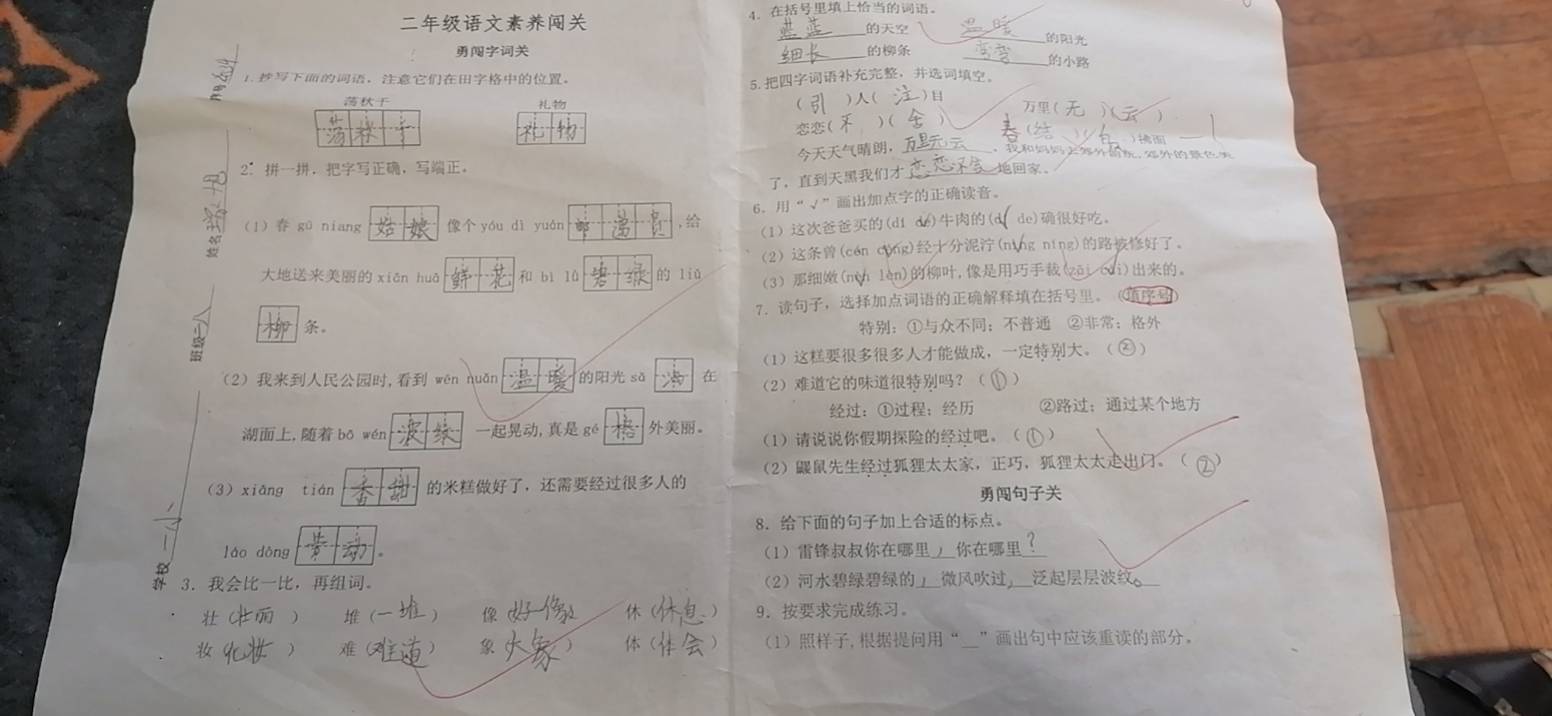 二年级语文素养闯关
勇闯字词关
1.抄写下面的词语，注意它们在田字格中的位置。
荡秋千 礼物
荡秋千 礼物
2. 拼一拼，把字写正确，写端正。
（1）春 gū niang 姑娘 像个 yóu dì yuán 邮递员 ,给
大地送来美丽的 xiān huā 鲜花 和 bì lǜ 碧绿 的 liǔ
柳 条。
（2）我来到人民公园时,看到 wēn nuǎn 温暖 的阳光 sǎ 洒 在
湖面上,随着 bō wén 波纹 一起晃动,真是 gé 格 外美丽。
（3）xiāng tián 香甜 的米糕做好了，还需要经过很多人的
láo dòng 劳动 。
3. 我会比一比，再组词。
壮（壮丽） 堆（一堆） 像（好像） 休（休息）
妆（化妆） 难（难道） 象（大象） 体（体会）
学校 一小
班级 二八
姓名
4. 在括号里填上恰当的词语。
蓝蓝 的天空 温暖 的阳光
细长 的柳条 弯弯 的小路
5.把四字词语补充完整，并选词填空。
（引）人（注）目 万里（无）（云）
恋恋（不）（舍） 春 拂面
今天天气晴朗，万里无云 ，我和妈妈去郊外游玩,郊外的景色美
了，直到天黑我们才 恋恋不舍 地回家。
6. 用“√”画出加点字的正确读音。
（1）这次爸爸买的(dí de)牛肉的(dí de)确很好吃。
（2）这条曾(cén céng)经十分泥泞(níng nìng)的路被修好了。
（3）那细嫩(nèn lèn)的柳叶,像是用巧手裁(zāi cái)出来的。
7. 读句子，选择加点词语的正确解释填在括号里。（填序号）
特别：①与众不同；不普通 ②非常；格外
（1）这糕要很多很多人才能做成，一定特别大。（②）
（2）难道它的味道很特别吗？（①）
经过：①过程；经历 ②路过；通过某个地方
（1）请说说你假期探险的经过吧。（①）
（2）鼹鼠先生经过狐狸太太家，正巧，狐狸太太走出门。（②）
勇闯句子关
8. 给下面的句子加上合适的标点。
（1）雷锋叔叔你在哪里，你在哪里？
（2）河水碧绿碧绿的，微风吹过，泛起层层波纹。
9. 按要求完成练习。
（1）照样子,根据提问用“__”画出句中应该重读的部分。